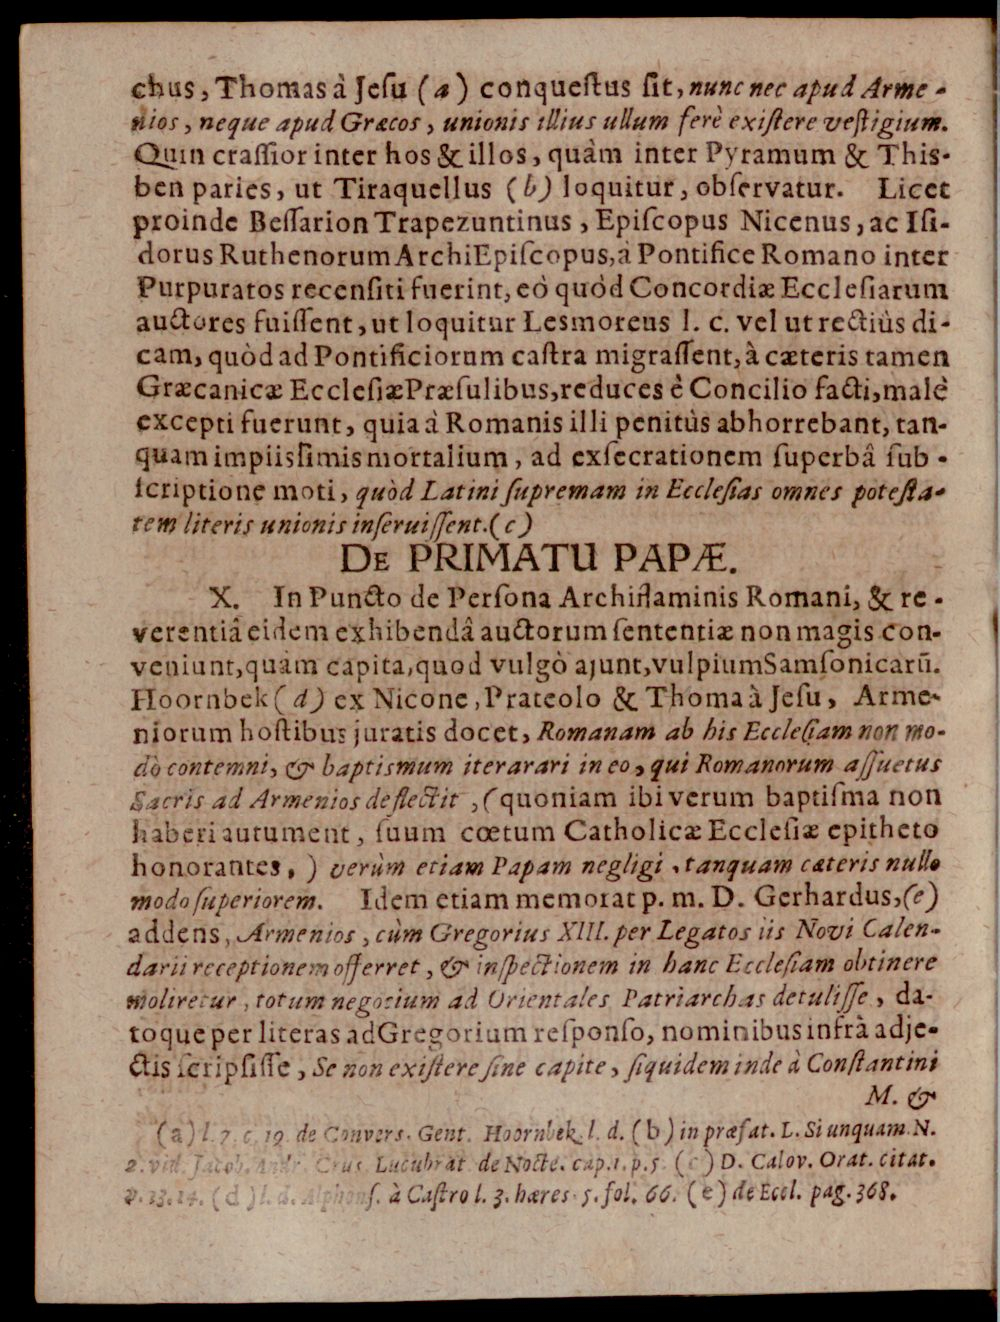 chus, Thomas à Jeſu (a) conqueſtus ſit, nunc nec apud Arme-
nios, neque apud Græcos, unionis illius ullum ferè exiſtere veſtigium.
Quin craſſior inter hos & illos, quàm inter Pyramum & This-
ben paries, ut Tiraquellus (b) loquitur, obſervatur. Licet
proinde Beſſarion Trapezuntinus, Epiſcopus Nicenus, ac Iſi-
dorus Ruthenorum ArchiEpiſcopus, à Pontifice Romano inter
Purpuratos recenſiti fuerint, eò quòd Concordiæ Eccleſiarum
auctores fuiſſent, ut loquitur Lesmoreus l. c. vel ut rectiùs di-
cam, quòd ad Pontificiorum caſtra migraſſent, à cæteris tamen
Græcanicæ EccleſiæPræſulibus, reduces è Concilio facti, malè
excepti fuerunt, quia à Romanis illi penitùs abhorrebant, tan-
quam impiisſimis mortalium, ad exſecrationem ſuperbâ ſub-
ſcriptione moti, quòd Latini ſupremam in Eccleſias omnes poteſta-
tem literis unionis inſeruiſſent. (c)
DE PRIMATU PAPÆ.
X. In Puncto de Perſona Archiflaminis Romani, & re-
verentiâ eidem exhibendâ auctorum ſententiæ non magis con-
veniunt, quàm capita, quod vulgò ajunt, vulpiumSamſonicarũ.
Hoornbek (d) ex Nicone, Prateolo & Thoma à Jeſu, Arme-
niorum hoſtibus juratis docet, Romanam ab his Eccleſiam non mo-
dò contemni, & baptismum iterarari in eo, qui Romanorum aſſuetus
Sacris ad Armenios deflectit, (quoniam ibi verum baptiſma non
haberi autument, ſuum cœtum Catholicæ Eccleſiæ epitheto
honorantes,) verùm etiam Papam negligi, tanquam cæteris nullo
modo ſuperiorem. Idem etiam memorat p. m. D. Gerhardus, (e)
addens, Armenios, cùm Gregorius XIII. per Legatos iis Novi Calen-
darii receptionem offerret, & inſpectionem in hanc Eccleſiam obtinere
moliretur, totum negotium ad Orientales Patriarchas detuliſſe, da-
toque per literas adGregorium reſponſo, nominibus infrà adje-
ctis ſcripſiſſe, Se non exiſtere ſine capite, ſiquidem inde à Conſtantini
M. &
(a) l. 7. c. 19. de Convers. Gent. Hoornbek l. d. (b) in præfat. L. Si unquam N.
2. vid. Jacob. Andr. Crus. Lucubrat. de Nocte. cap. 1. p. 5. (c) D. Calov. Orat. citat.
p. 13. 14. (d) l. d. Alphonſ. à Caſtro l. 3. hæres. 5. fol. 66. (e) de Eccl. pag. 368.